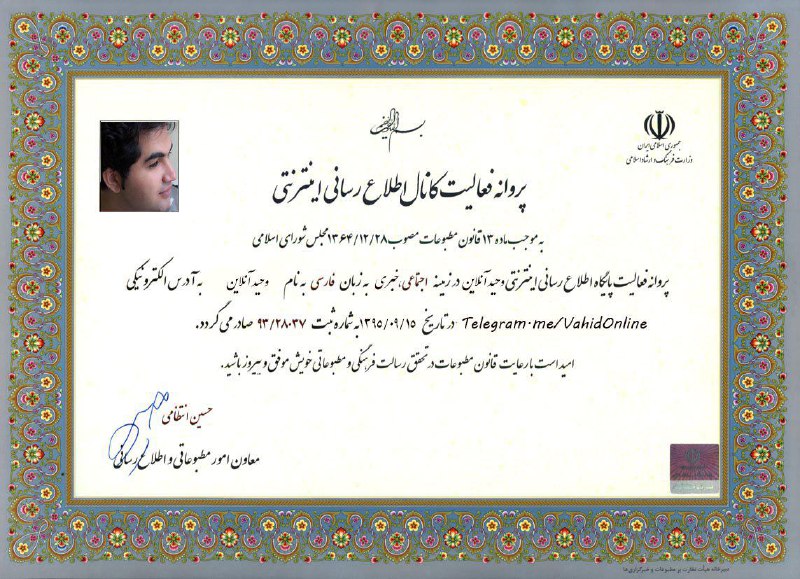 بسم الله الرحمن الرحیم
جمهوری اسلامی ایران
وزارت فرهنگ و ارشاد اسلامی
پروانه فعالیت کانال اطلاع رسانی اینترنتی
به موجب ماده ۱۳ قانون مطبوعات مصوب ۱۳۶۴/۱۲/۲۸ مجلس شورای اسلامی
پروانه فعالیت پایگاه اطلاع رسانی اینترنتی وحید آنلاین در زمینه اجتماعی،خبری به زبان فارسی به نام وحید آنلاین به آدرس الکترونیکی
Telegram.me/VahidOnline در تاریخ ۱۳۹۵/۰۹/۱۵ به شماره ثبت ۹۳/۲۸۰۳۷ صادر می گردد.
امید است با رعایت قانون مطبوعات در تحقق رسالت فرهنگی و مطبوعاتی خویش موفق و پیروز باشید.
حسین انتظامی
معاون امور مطبوعاتی و اطلاع رسانی
دبیرخانه هیأت نظارت بر مطبوعات و خبرگزاری‌ها